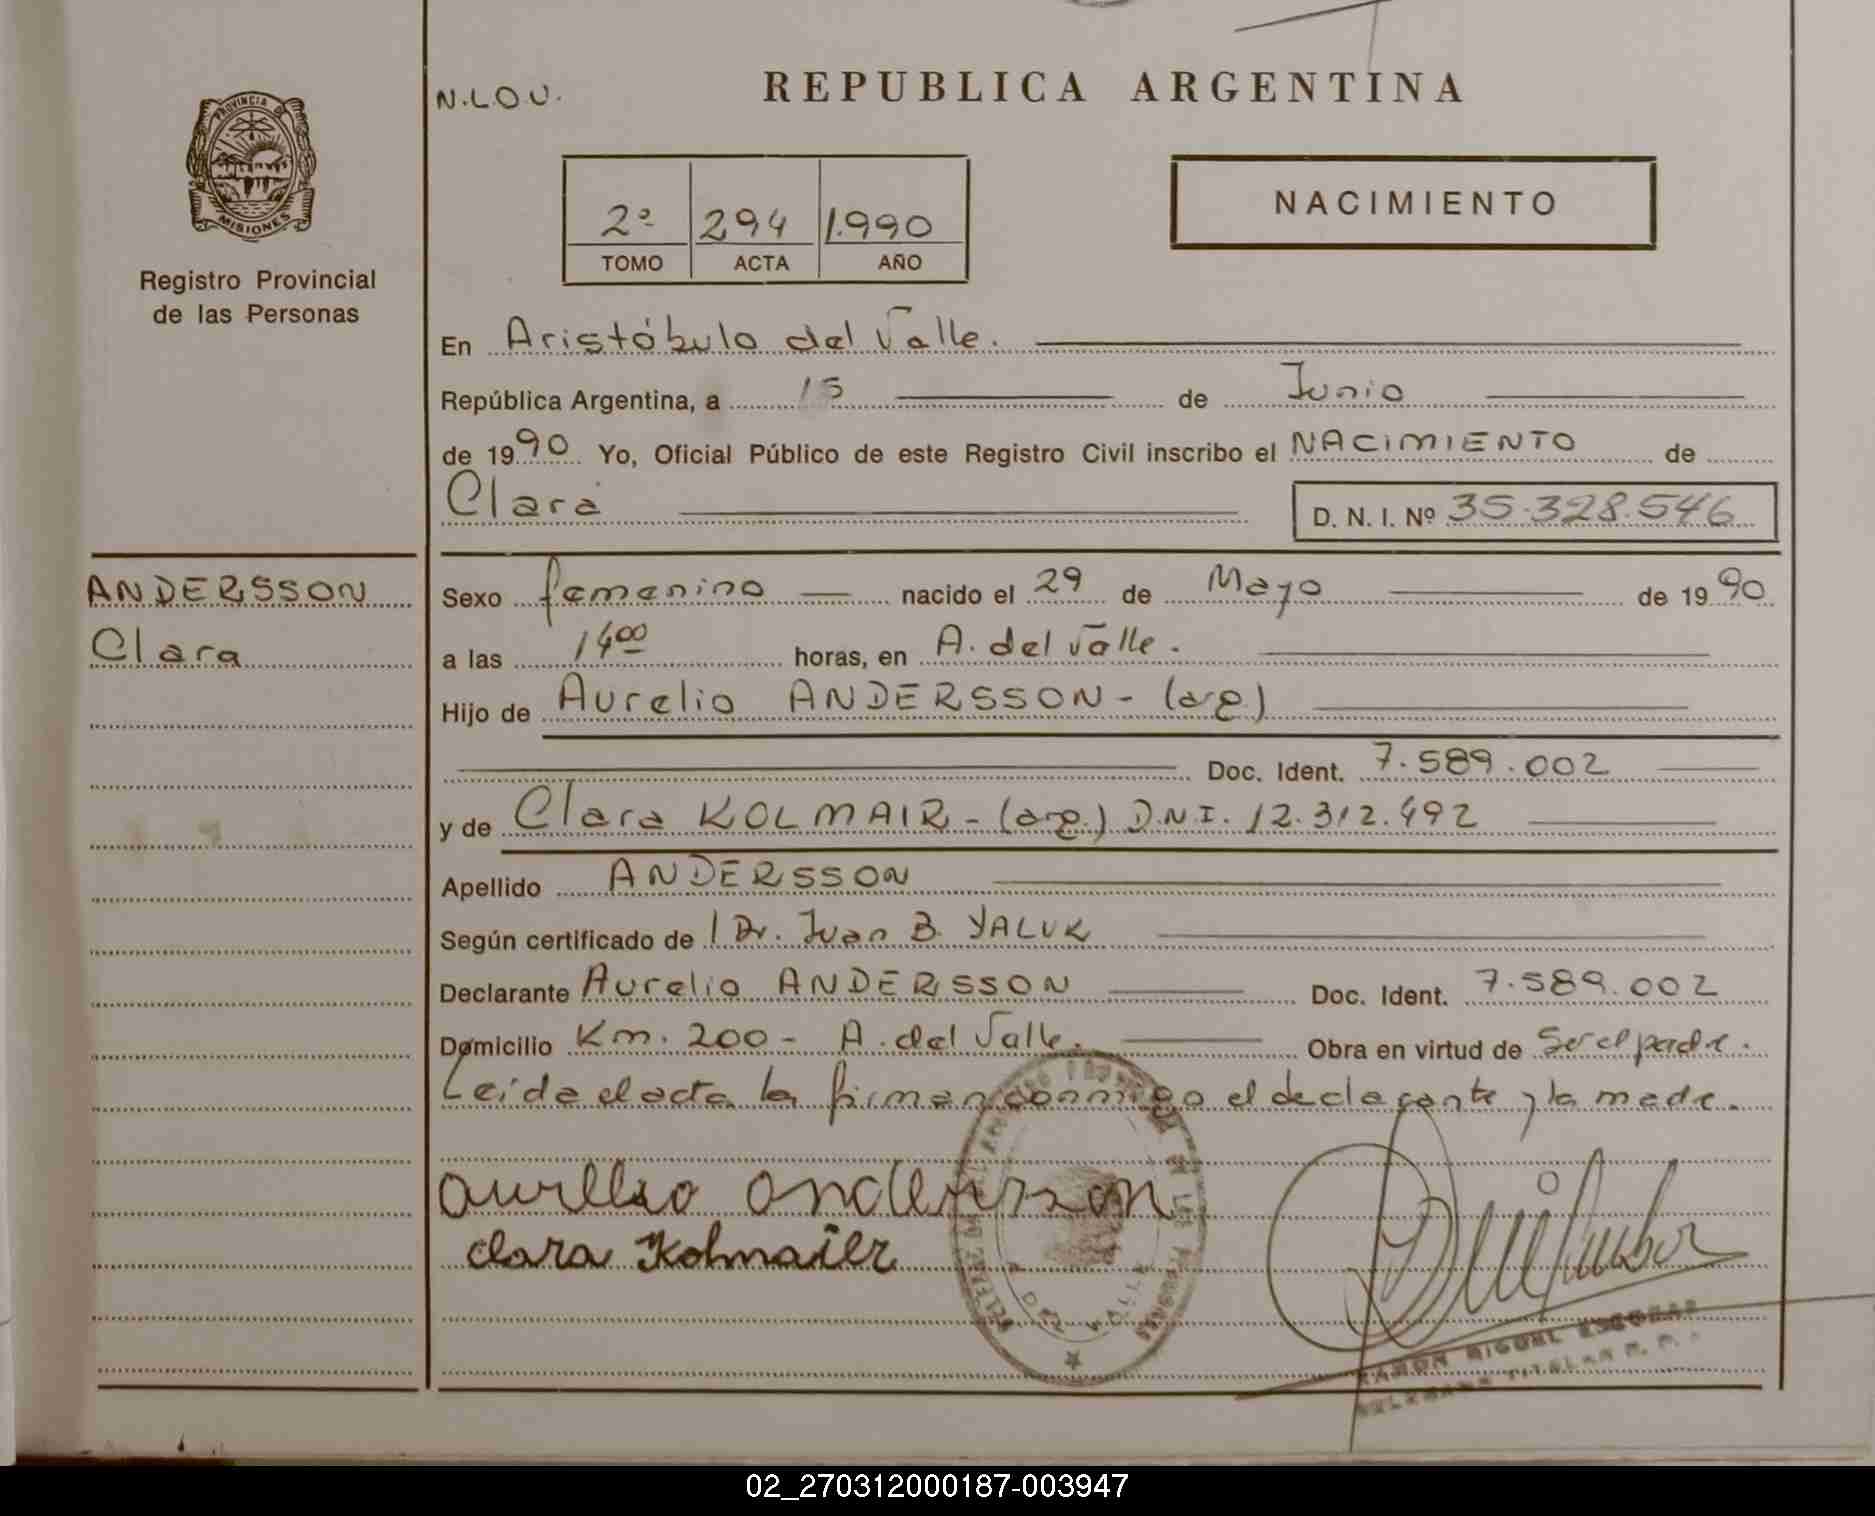 N.L.O.U.
REPUBLICA ARGENTINA
PROVINCIA DE
MISIONES
2º 294 1.990
TOMO ACTA AÑO
NACIMIENTO
Registro Provincial
de las Personas
En Aristóbulo del Valle.
República Argentina, a 15 de Junio
de 1990 Yo, Oficial Público de este Registro Civil inscribo el NACIMIENTO de
Clara D. N. I. Nº 35.328.546
ANDERSSON
Clara
Sexo femenino nacido el 29 de Mayo de 1990
a las 14 00 horas, en A. del Valle.
Hijo de Aurelio ANDERSSON - (arg.)
Doc. Ident. 7.589.002
y de Clara KOLMAIR - (arg.) D.N.I. 12.312.492
Apellido ANDERSSON
Según certificado de l Dr. Juan B. YALUK
Declarante Aurelio ANDERSSON Doc. Ident. 7.589.002
Domicilio Km. 200 - A. del Valle. Obra en virtud de Ser el padre.
Leída el acta la firman conmigo el declarante y la madre.
aurelio anderson
clara Kolmaier
DEL VALLE
RAMON MIGUEL ESCOBAR
TITULAR
02_270312000187-003947